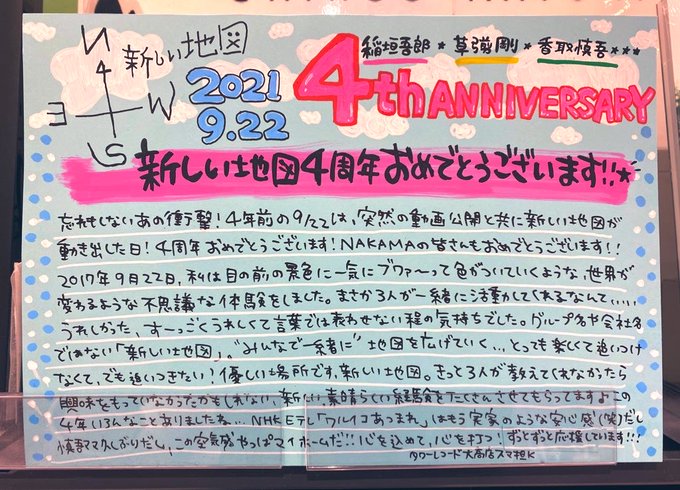 N
E W
S
新しい地図
2021
9.22
稲垣吾郎★草彅剛★香取慎吾★★★
4th ANNIVERSARY
新しい地図4周年おめでとうございます!!★
忘れもしないあの衝撃!4年前の9/22は、突然の動画公開と共に新しい地図が
動き出した日!4周年おめでとうございます!NAKAMAの皆さんもおめでとうございます!!
2017年9月22日、私は目の前の景色に一気にブワァーって色がついていくような、世界が
変わるような不思議な体験をしました。まさか3人が一緒に活動してくれるなんて...
うれしかった、すーっごくうれしくて言葉では表わせない程の気持ちでした。グループ名や会社名
ではない「新しい地図」。"みんなで一緒に"地図を広げていく...、とっても楽しくて追いつけ
なくて、でも追いつきたい!優しい場所です、新しい地図。きっと3人が教えてくれなかったら
興味をもっていなかったかもしれない、新しい、素晴らしい経験をたくさんさせてもらってますよこの
4年いろんなことありましたね...NHK Eテレ「ワルイコあつまれ」はもう実家のような安心感(笑)だし
慎吾ママ久しぶりだし、この空気感やっぱマイホームだ!!心を込めて、心を打つ!ずっとずっと応援しています!!!
タワーレコード大高店スマ担K